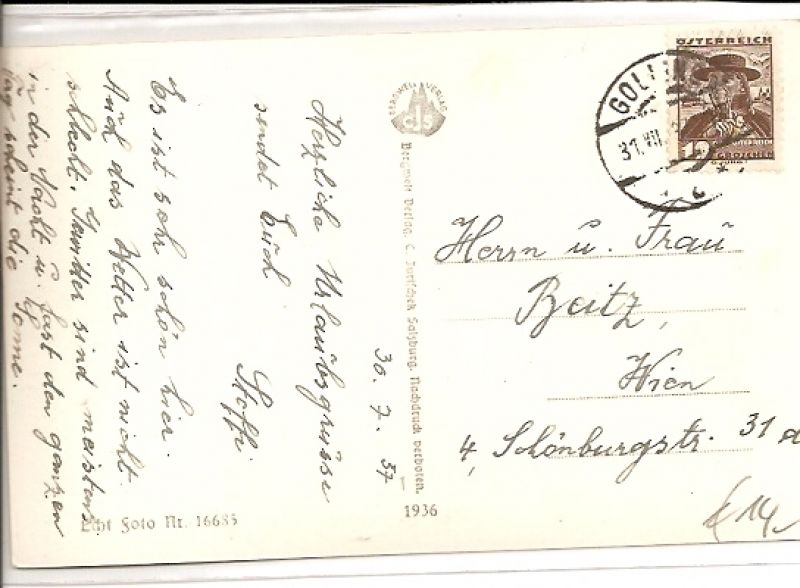 30. 7. 37
Herzliche Urlaubsgrüsse
sendet Euch
Steffi
Es ist sehr schön hier.
Auch das Wetter ist nicht
schlecht. Gewitter sind meistens
in der Nacht u. fast den ganzen
Tag scheint die Sonne.
Echt Foto Nr. 16685
BERGWELT VERLAG
cjs
Bergwelt Verlag, C. Jurischek Salzburg. Nachdruck verboten.
1936
ÖSTERREICH
GOLLIN
31. VII. 3
ÖSTERREICH
12 GROSCHEN
Herrn u. Frau
Beitz,
Wien
4, Schönburgstr. 31
€ 14,-